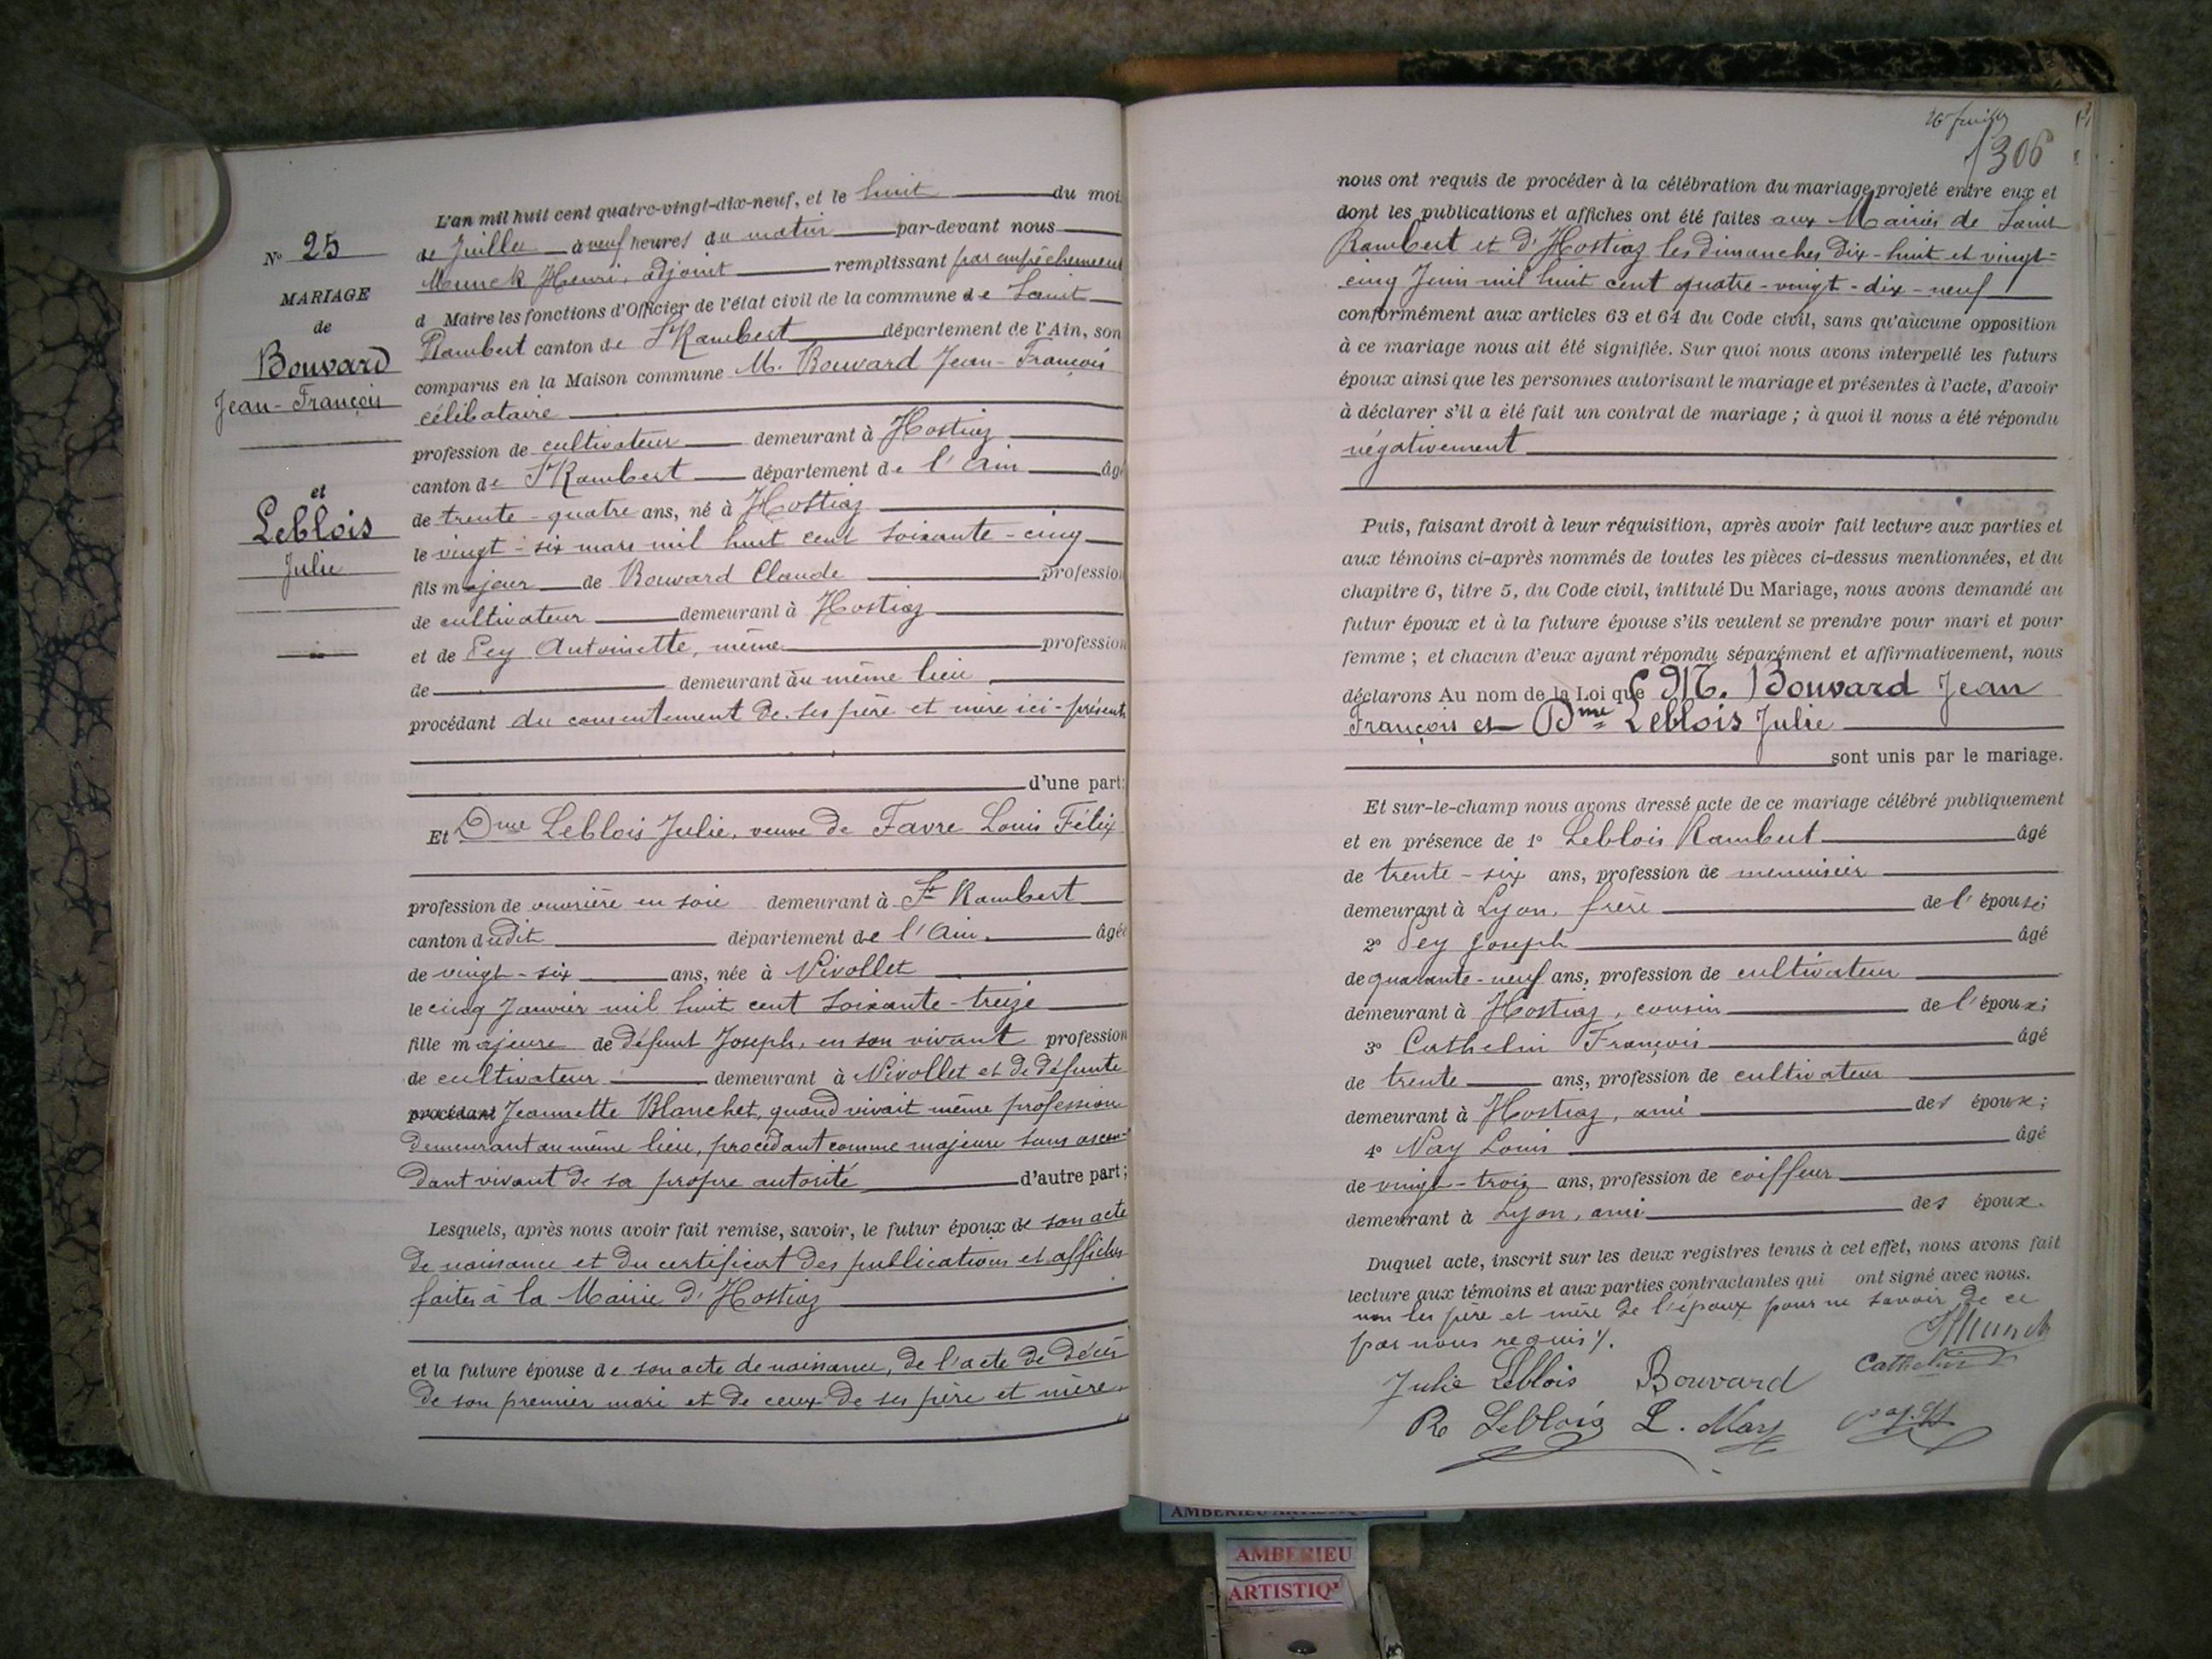 N° 25
MARIAGE
de
Bouvard
Jean-François
et
Leblois
Julie
L'an mil huit cent quatre-vingt-dix-neuf, et le huit du moi
de Juillet à neuf heures du matin par-devant nous
Munck Henri, adjoint remplissant par empêchement
d Maire les fonctions d'Officier de l'état civil de la commune de Saint
Rambert canton de St Rambert département de l'Ain, son
comparus en la Maison commune M. Bouvard Jean-François
célibataire
profession de cultivateur demeurant à Hostiaz
canton de St Rambert département de l'Ain âgé
de trente-quatre ans, né à Hostiaz
le vingt-six mars mil huit cent soixante-cinq
fils majeur de Bouvard Claude profession
de cultivateur demeurant à Hostiaz
et de Pey Antoinette, même profession
de demeurant au même lieu
procédant du consentement de ses père et mère ici-présents
d'une part;
Et Dme Leblois Julie, veuve de Favre Louis Félix
profession de ouvrière en soie demeurant à St Rambert
canton dudit département de l'Ain. âgée
de vingt-six ans, née à Nivollet
le cinq Janvier mil huit cent soixante-treize
fille majeure de défunt Joseph, en son vivant profession
de cultivateur demeurant à Nivollet et de défunte
procédant Jeannette Blanchet, quand vivait même profession
demeurant au même lieu, procédant comme majeure sans ascen-
dant vivant de sa propre autorité d'autre part;
Lesquels, après nous avoir fait remise, savoir, le futur époux de son acte
de naissance et du certificat des publications et affiches
faites à la Mairie d'Hostiaz
et la future épouse de son acte de naissance, de l'acte de décès
de son premier mari et de ceux de ses père et mère.
306
nous ont requis de procéder à la célébration du mariage projeté entre eux et
dont les publications et affiches ont été faites aux Mairies de Saint
Rambert et d'Hostiaz les dimanches dix-huit et vingt-
cinq Juin mil huit cent quatre-vingt-dix-neuf
conformément aux articles 63 et 64 du Code civil, sans qu'aucune opposition
à ce mariage nous ait été signifiée. Sur quoi nous avons interpellé les futurs
époux ainsi que les personnes autorisant le mariage et présentes à l'acte, d'avoir
à déclarer s'il a été fait un contrat de mariage; à quoi il nous a été répondu
négativement
Puis, faisant droit à leur réquisition, après avoir fait lecture aux parties et
aux témoins ci-après nommés de toutes les pièces ci-dessus mentionnées, et du
chapitre 6, titre 5, du Code civil, intitulé Du Mariage, nous avons demandé au
futur époux et à la future épouse s'ils veulent se prendre pour mari et pour
femme; et chacun d'eux ayant répondu séparément et affirmativement, nous
déclarons Au nom de la Loi que M. Bouvard Jean
François et Dme Leblois Julie
sont unis par le mariage.
Et sur-le-champ nous avons dressé acte de ce mariage célébré publiquement
et en présence de 1° Leblois Rambert âgé
de trente-six ans, profession de menuisier
demeurant à Lyon, frère de l'épouse;
2° Pey Joseph âgé
de quarante-neuf ans, profession de cultivateur
demeurant à Hostiaz, cousin de l'époux;
3° Cathelin François âgé
de trente ans, profession de cultivateur
demeurant à Hostiaz, ami des époux;
4° Nay Louis âgé
de vingt-trois ans, profession de coiffeur
demeurant à Lyon, ami des époux.
Duquel acte, inscrit sur les deux registres tenus à cet effet, nous avons fait
lecture aux témoins et aux parties contractantes qui ont signé avec nous.
non les père et mère de l'époux pour ne savoir de ce
par nous requis /.
HMunck
Julie Leblois Bouvard Cathelin
Leblois L. Nay
AMBERIEU
ARTISTIQ